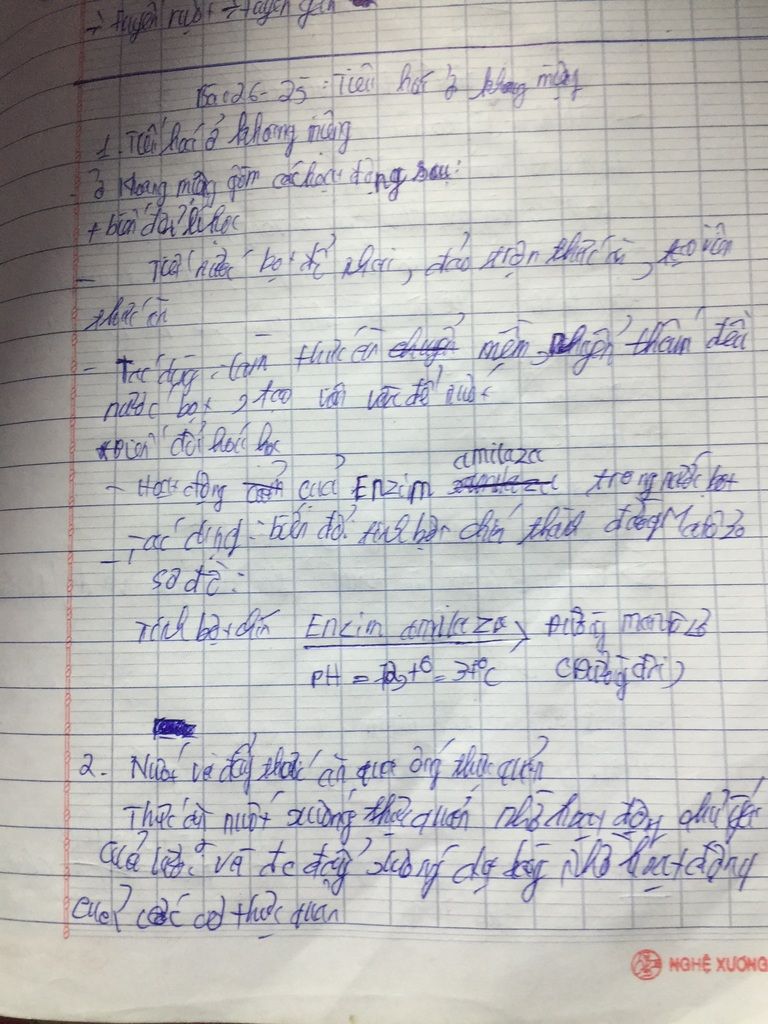 → tuyến ruột → tuyến gan
Bài 26-25: Tiêu hoá ở khoang miệng
1. Tiêu hoá ở khoang miệng
- ở khoang miệng gồm các hoạt động sau:
+ biến đổi lí học
- Tiết nước bọt để nhai, đảo trộn thức ăn, tạo viên
thức ăn
- Tác dụng: làm thức ăn mềm, nhuyễn, thấm đều
nước bọt, tạo viên vừa để nuốt
biến đổi hoá học
amilaza
- Hoạt động của Enzim trong nước bọt
- Tác dụng: biến đổi tinh bột chín thành đường Mantozo
sơ đồ:
Tinh bột chín Enzim amilaza → Đường mantozo
PH = t° = 37°C (Đường đôi)
2. Nuốt và đẩy thức ăn qua ống thực quản
Thức ăn nuốt xuống thực quản nhờ hoạt động chủ yếu
của lưỡi và đc đẩy xuống dạ dày nhờ hoạt động
của các cơ thực quản
NGHỆ XƯƠNG